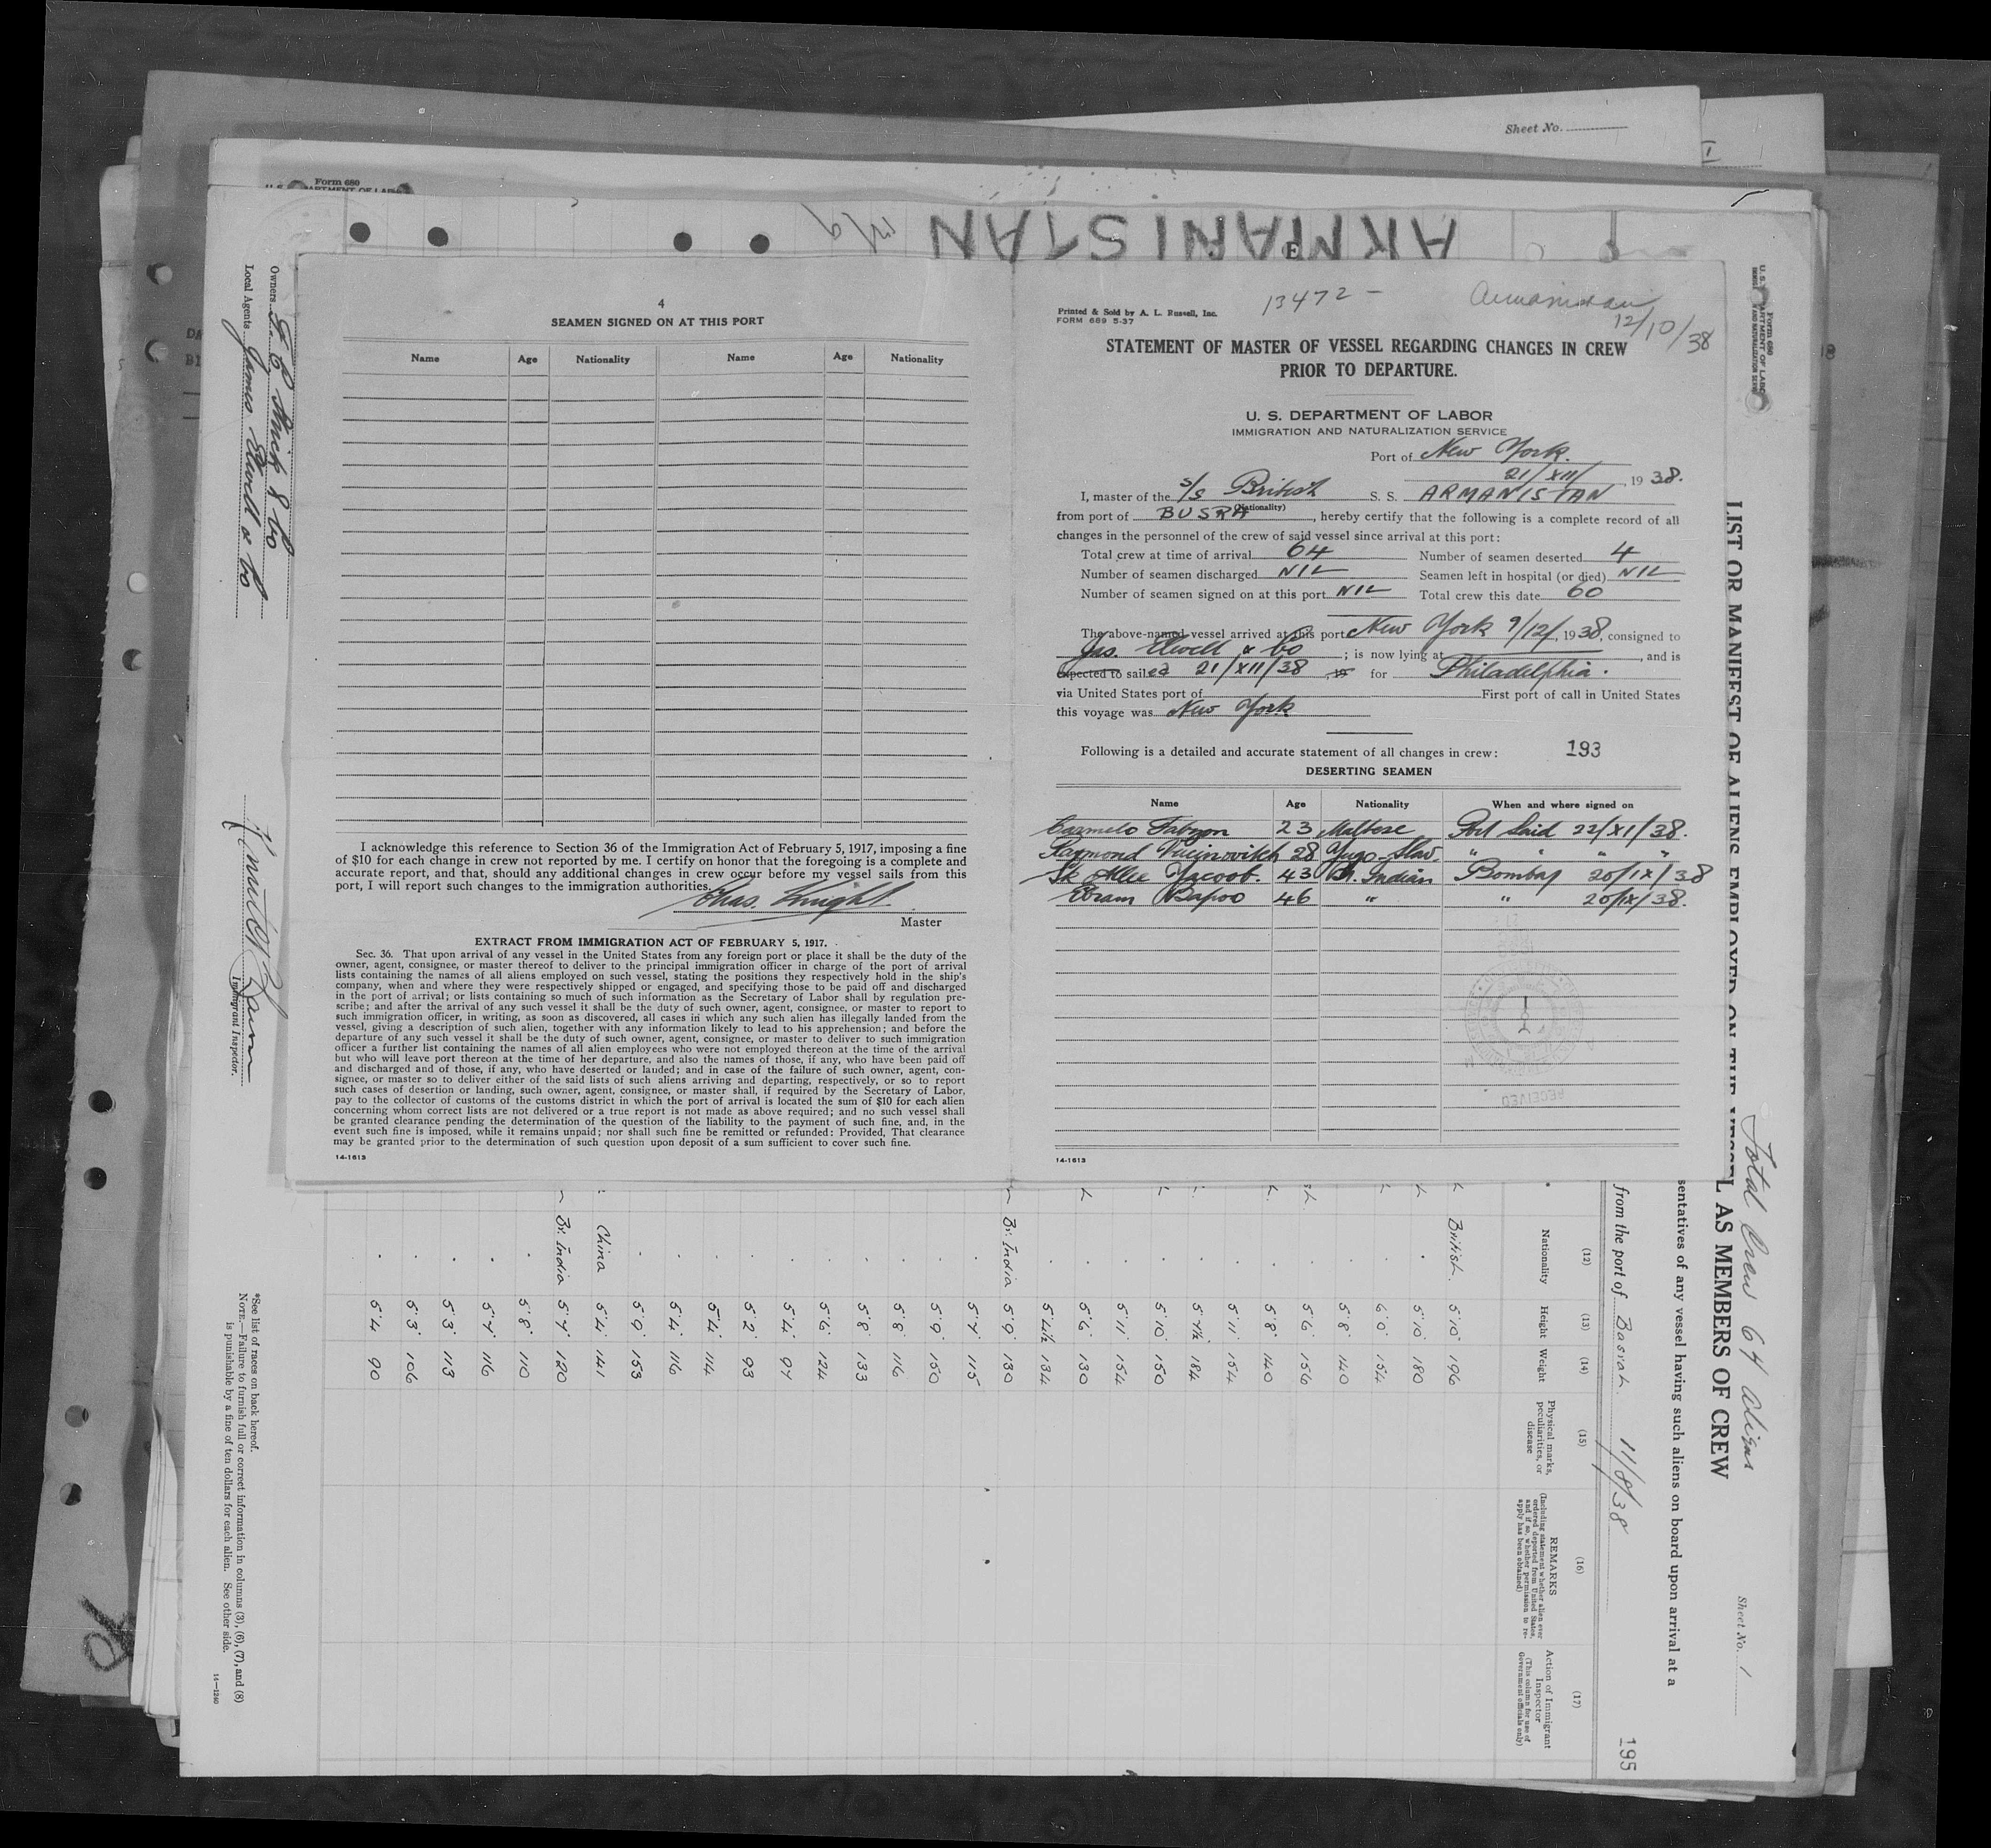 Sheet No.
Form 680
ARMANISTAN
4
SEAMEN SIGNED ON AT THIS PORT
Name Age Nationality Name Age Nationality
I acknowledge this reference to Section 36 of the Immigration Act of February 5, 1917, imposing a fine
of $10 for each change in crew not reported by me. I certify on honor that the foregoing is a complete and
accurate report, and that, should any additional changes in crew occur before my vessel sails from this
port, I will report such changes to the immigration authorities.
Chas. Knight
Master
EXTRACT FROM IMMIGRATION ACT OF FEBRUARY 5, 1917.
Sec. 36. That upon arrival of any vessel in the United States from any foreign port or place it shall be the duty of the
owner, agent, consignee, or master thereof to deliver to the principal immigration officer in charge of the port of arrival
lists containing the names of all aliens employed on such vessel, stating the positions they respectively hold in the ship's
company, when and where they were respectively shipped or engaged, and specifying those to be paid off and discharged
in the port of arrival; or lists containing so much of such information as the Secretary of Labor shall by regulation pre-
scribe; and after the arrival of any such vessel it shall be the duty of such owner, agent, consignee, or master to report to
such immigration officer, in writing, as soon as discovered, all cases in which any such alien has illegally landed from the
vessel, giving a description of such alien, together with any information likely to lead to his apprehension; and before the
departure of any such vessel it shall be the duty of such owner, agent, consignee, or master to deliver to such immigration
officer a further list containing the names of all alien employees who were not employed thereon at the time of the arrival
but who will leave port thereon at the time of her departure, and also the names of those, if any, who have been paid off
and discharged and of those, if any, who have deserted or landed; and in case of the failure of such owner, agent, con-
signee, or master so to deliver either of the said lists of such aliens arriving and departing, respectively, or so to report
such cases of desertion or landing, such owner, agent, consignee, or master shall, if required by the Secretary of Labor,
pay to the collector of customs of the customs district in which the port of arrival is located the sum of $10 for each alien
concerning whom correct lists are not delivered or a true report is not made as above required; and no such vessel shall
be granted clearance pending the determination of the question of the liability to the payment of such fine, and, in the
event such fine is imposed, while it remains unpaid; nor shall such fine be remitted or refunded: Provided, That clearance
may be granted prior to the determination of such question upon deposit of a sum sufficient to cover such fine.
14-1613
13472 -
Armanistan
12/10/38
Printed & Sold by A. L. Russell, Inc.
FORM 689 5-37
STATEMENT OF MASTER OF VESSEL REGARDING CHANGES IN CREW
PRIOR TO DEPARTURE.
U. S. DEPARTMENT OF LABOR
IMMIGRATION AND NATURALIZATION SERVICE
Port of New York.
21/XII/, 1938.
I, master of the s/s British S. S. ARMANISTAN
(Nationality)
from port of BUSRA, hereby certify that the following is a complete record of all
changes in the personnel of the crew of said vessel since arrival at this port:
Total crew at time of arrival 64 Number of seamen deserted 4
Number of seamen discharged NIL Seamen left in hospital (or died) NIL
Number of seamen signed on at this port NIL Total crew this date 60
The above-named vessel arrived at this port New York 9/12/, 1938, consigned to
Jas. Elwell & Co; is now lying at, and is
expected to sailed 21/XII/38 for Philadelphia.
via United States port of First port of call in United States
this voyage was New York
Following is a detailed and accurate statement of all changes in crew: 193
DESERTING SEAMEN
Name Age Nationality When and where signed on
Carmelo 23 Maltese Port Said 22/XI/38.
Raymond Vucinovitch 28 Yugo-Slav. " " " "
Sk Allee Yacoob. 43 Br. Indian Bombay 20/IX/38
Ebram Bapoo 46 " " 20/IX/38.
RECEIVED
14-1613
Form 680
LIST OR MANIFEST OF ALIENS EMPLOYED ON THE VESSEL AS MEMBERS OF CREW
Total Crew 64 aliens
Sheet No. 1
sentatives of any vessel having such aliens on board upon arrival at a
from the port of Basrah. 11/8/38
195
(12) (13) (14) (15) (16) (17)
Nationality Height Weight
Physical marks, peculiarities, or disease
REMARKS
(Including statement whether alien ever ordered deported from United States, and if so, whether permission to re-apply has been obtained)
Action of Immigrant Inspector
(This column for use of Government officials only)
British. 5'10" 196
5'10" 180
6'0" 154
5'8" 140
5'6" 156
5'8" 140
5'11" 154
5'9½ 184
5'10" 150
5'11" 154
5'6" 130
5'4½ 134
Br. India 5'9" 130
5'7" 115
5'9" 150
5'8" 116
5'8" 133
5'6" 124
5'4" 97
5'2" 93
5'4" 114
5'4" 116
5'9" 153
China 5'4" 141
Br. India 5'7" 120
5'8" 110
5'7" 116
5'3" 113
5'3" 106
5'4" 90
Owners F. C. Strick & Co
Local Agents James Elwell & Co
Immigrant Inspector.
*See list of races on back hereof.
NOTE.—Failure to furnish full or correct information in columns (3), (6), (7), and (8)
is punishable by a fine of ten dollars for each alien. See other side.
14-1240